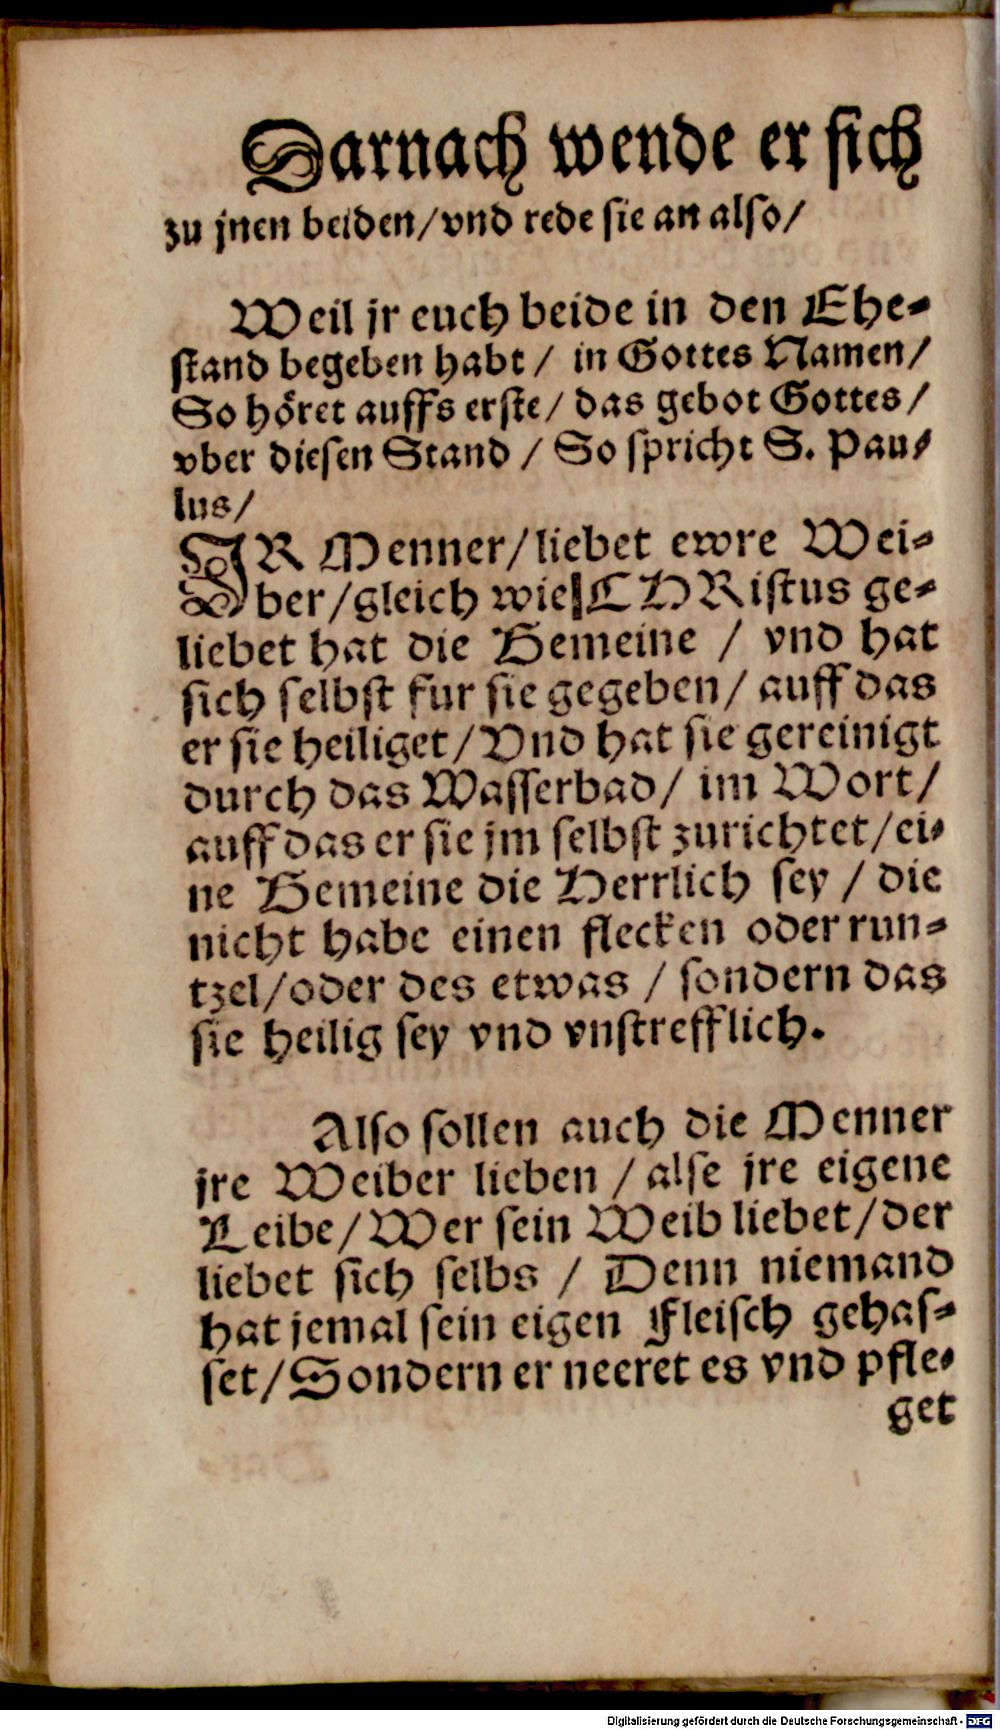 Darnach wende er sich
zu jnen beiden/vnd rede sie an also/
Weil jr euch beide in den Ehe-
stand begeben habt/ in Gottes Namen/
So höret auffs erste/ das gebot Gottes/
vber diesen Stand / So spricht S. Pau-
lus/
IR Menner/liebet ewre Wei-
ber/gleich wie CHRistus ge-
liebet hat die Gemeine / vnd hat
sich selbst fur sie gegeben/ auff das
er sie heiliget/Vnd hat sie gereinigt
durch das Wasserbad/ im Wort/
auff das er sie jm selbst zurichtet/ei-
ne Gemeine die Herrlich sey / die
nicht habe einen flecken oder run-
tzel/oder des etwas / sondern das
sie heilig sey vnd vnstrefflich.
Also sollen auch die Menner
jre Weiber lieben / alse jre eigene
Leibe/Wer sein Weib liebet/der
liebet sich selbs / Denn niemand
hat jemal sein eigen Fleisch gehas-
set/Sondern er neeret es vnd pfle-
get
Digitalisierung gefördert durch die Deutsche Forschungsgemeinschaft - DFG